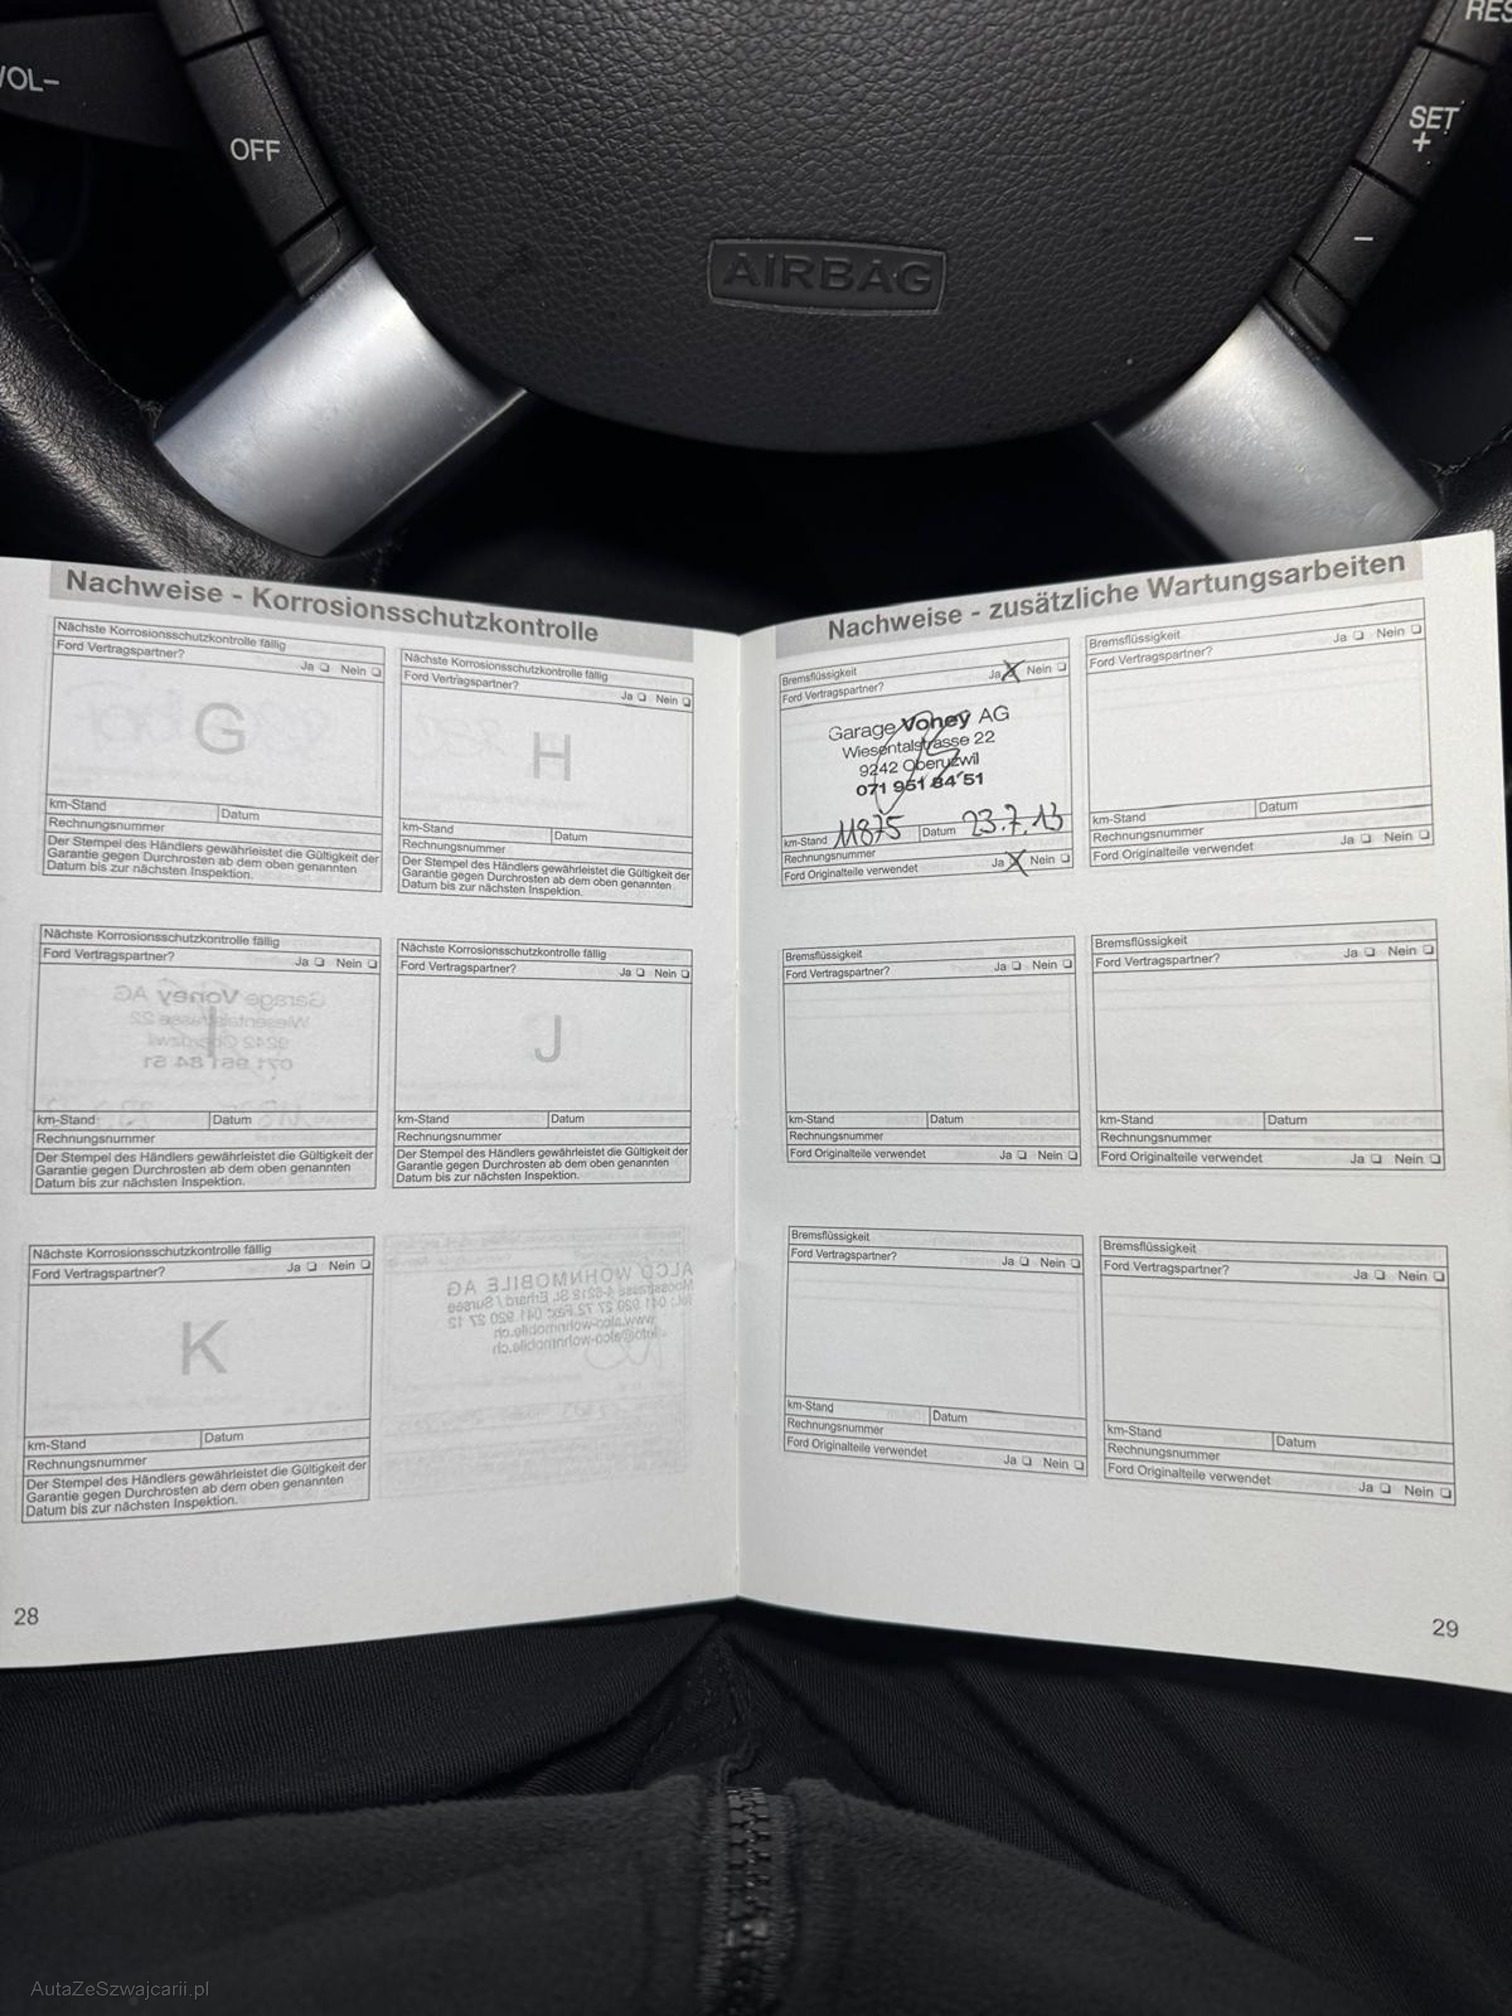 VOL-
OFF
RES
SET
+
-
AIRBAG
Nachweise - Korrosionsschutzkontrolle
Nächste Korrosionsschutzkontrolle fällig
Ford Vertragspartner?
Ja ❑ Nein ❑
G
km-Stand
Datum
Rechnungsnummer
Der Stempel des Händlers gewährleistet die Gültigkeit der
Garantie gegen Durchrosten ab dem oben genannten
Datum bis zur nächsten Inspektion.
Nächste Korrosionsschutzkontrolle fällig
Ford Vertragspartner?
Ja ❑ Nein ❑
H
km-Stand
Datum
Rechnungsnummer
Der Stempel des Händlers gewährleistet die Gültigkeit der
Garantie gegen Durchrosten ab dem oben genannten
Datum bis zur nächsten Inspektion.
Nächste Korrosionsschutzkontrolle fällig
Ford Vertragspartner?
Ja ❑ Nein ❑
I
km-Stand
Datum
Rechnungsnummer
Der Stempel des Händlers gewährleistet die Gültigkeit der
Garantie gegen Durchrosten ab dem oben genannten
Datum bis zur nächsten Inspektion.
Nächste Korrosionsschutzkontrolle fällig
Ford Vertragspartner?
Ja ❑ Nein ❑
J
km-Stand
Datum
Rechnungsnummer
Der Stempel des Händlers gewährleistet die Gültigkeit der
Garantie gegen Durchrosten ab dem oben genannten
Datum bis zur nächsten Inspektion.
Nächste Korrosionsschutzkontrolle fällig
Ford Vertragspartner?
Ja ❑ Nein ❑
K
km-Stand
Datum
Rechnungsnummer
Der Stempel des Händlers gewährleistet die Gültigkeit der
Garantie gegen Durchrosten ab dem oben genannten
Datum bis zur nächsten Inspektion.
28
Nachweise - zusätzliche Wartungsarbeiten
Bremsflüssigkeit
Ford Vertragspartner?
Ja X Nein ❑
Garage Voney AG
Wiesentalstrasse 22
9242 Oberuzwil
071 951 84 51
km-Stand 11875 Datum 23.7.13
Rechnungsnummer
Ford Originalteile verwendet Ja X Nein ❑
Bremsflüssigkeit
Ford Vertragspartner?
Ja ❑ Nein ❑
km-Stand
Datum
Rechnungsnummer
Ford Originalteile verwendet Ja ❑ Nein ❑
Bremsflüssigkeit
Ford Vertragspartner?
Ja ❑ Nein ❑
km-Stand
Datum
Rechnungsnummer
Ford Originalteile verwendet Ja ❑ Nein ❑
Bremsflüssigkeit
Ford Vertragspartner?
Ja ❑ Nein ❑
km-Stand
Datum
Rechnungsnummer
Ford Originalteile verwendet Ja ❑ Nein ❑
Bremsflüssigkeit
Ford Vertragspartner?
Ja ❑ Nein ❑
km-Stand
Datum
Rechnungsnummer
Ford Originalteile verwendet Ja ❑ Nein ❑
Bremsflüssigkeit
Ford Vertragspartner?
Ja ❑ Nein ❑
km-Stand
Datum
Rechnungsnummer
Ford Originalteile verwendet Ja ❑ Nein ❑
29
AutaZeSzwajcarii.pl